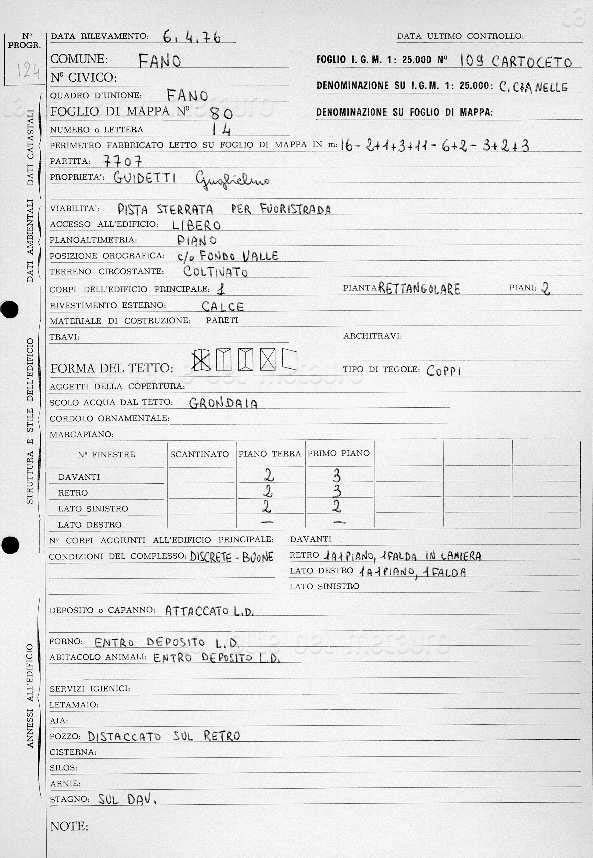 N° PROGR. 124
DATA RILEVAMENTO: 6.4.76
DATA ULTIMO CONTROLLO:
COMUNE: FANO
FOGLIO I.G.M. 1: 25.000 N° 109 CARTOCETO
N° CIVICO:
DENOMINAZIONE SU I.G.M. 1: 25.000:
QUADRO D'UNIONE: FANO
FOGLIO DI MAPPA N° 80
DENOMINAZIONE SU FOGLIO DI MAPPA:
NUMERO o LETTERA 14
PERIMETRO FABBRICATO LETTO SU FOGLIO DI MAPPA IN m: 16-2+1+3+11-6+2-3+2+3
PARTITA: 7707
PROPRIETA': GUIDETTI Guglielmo
DATI CATASTALI
DATI AMBIENTALI
VIABILITA': PISTA STERRATA PER FUORISTRADA
ACCESSO ALL'EDIFICIO: LIBERO
PLANOALTIMETRIA: PIANO
POSIZIONE OROGRAFICA: c/o FONDO VALLE
TERRENO CIRCOSTANTE: COLTIVATO
STRUTTURA E STILE DELL'EDIFICIO
CORPI DELL'EDIFICIO PRINCIPALE: 1
PIANTA RETTANGOLARE
PIANI: 2
RIVESTIMENTO ESTERNO: CALCE
MATERIALE DI COSTRUZIONE: PARETI
TRAVI:
ARCHITRAVI:
FORMA DEL TETTO:
TIPO DI TEGOLE: COPPI
AGGETTI DELLA COPERTURA:
SCOLO ACQUA DAL TETTO: GRONDAIA
CORDOLO ORNAMENTALE:
MARCAPIANO:
N° FINESTRE SCANTINATO PIANO TERRA PRIMO PIANO
DAVANTI 2 3
RETRO 2 3
LATO SINISTRO 2 2
LATO DESTRO – –
N° CORPI AGGIUNTI ALL'EDIFICIO PRINCIPALE:
DAVANTI
CONDIZIONI DEL COMPLESSO: DISCRETE-BUONE
RETRO 1A1PIANO, 1FALDA IN LAMIERA
LATO DESTRO 1A1PIANO, 1FALDA
LATO SINISTRO
ANNESSI ALL'EDIFICIO
DEPOSITO o CAPANNO: ATTACCATO L.D.
FORNO: ENTRO DEPOSITO L.D.
ABITACOLO ANIMALI: ENTRO DEPOSITO L.D.
SERVIZI IGIENICI:
LETAMAIO:
AIA:
POZZO: DISTACCATO SUL RETRO
CISTERNA:
SILOS:
ARNIE:
STAGNO: SUL DAV.
NOTE: